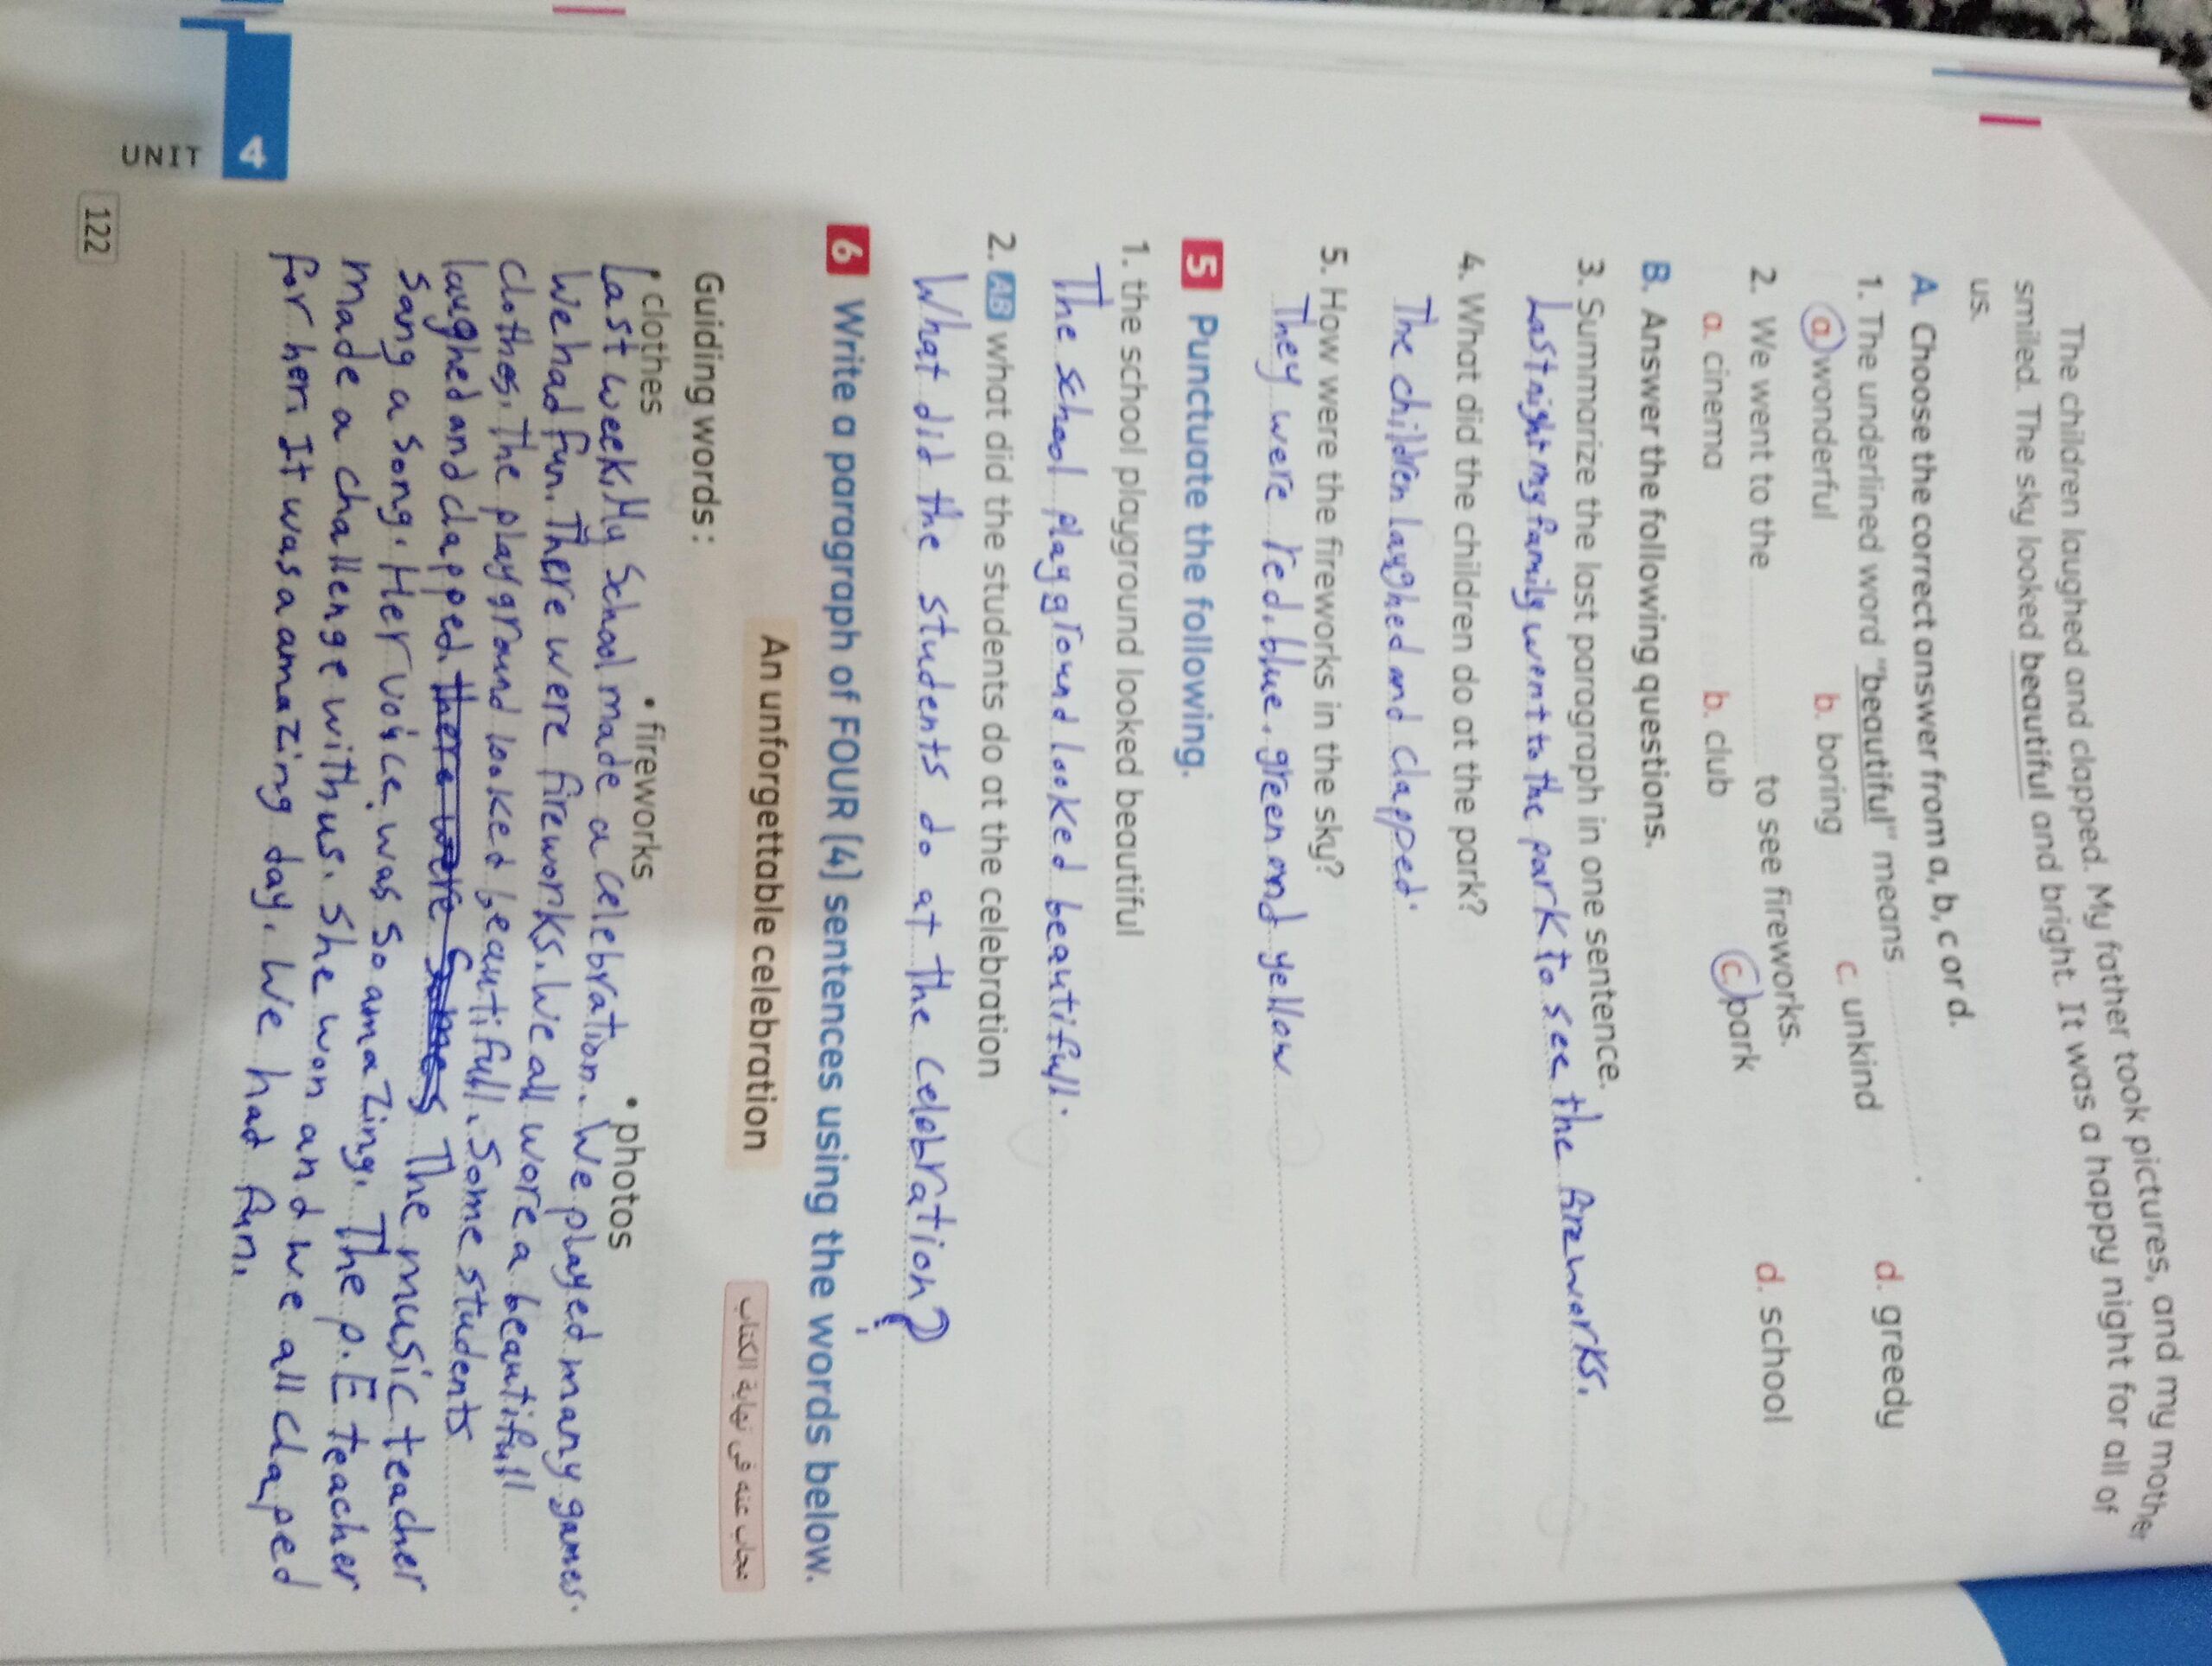 The children laughed and clapped. My father took pictures, and my mother
smiled. The sky looked beautiful and bright. It was a happy night for all of
us.
A. Choose the correct answer from a, b, c or d.
1. The underlined word "beautiful" means .
a. wonderful b. boring c. unkind d. greedy
2. We went to the to see fireworks.
a. cinema b. club c. park d. school
B. Answer the following questions.
3. Summarize the last paragraph in one sentence.
Last night my family went to the park to see the fireworks.
4. What did the children do at the park?
The children laughed and clapped.
5. How were the fireworks in the sky?
They were red, blue, green and yellow
5 Punctuate the following.
1. the school playground looked beautiful
The school playground looked beautifull.
2. AB what did the students do at the celebration
What did the students do at the celebration?
6 Write a paragraph of FOUR (4) sentences using the words below.
An unforgettable celebration مجاب عنه في نهاية الكتاب
Guiding words :
• clothes • fireworks • photos
Last week, My School made a celebration. We played many games.
We had fun. There were fireworks. We all wore a beautifull
clothes. The playground looked beautifull. Some students
laughed and clapped. there were Somes The music teacher
Sang a Song. Her voice was so amazing. The p.E teacher
made a challenge with us. She won and we all claped
for her. It was a amazing day. We had fun.
UNIT 4
122